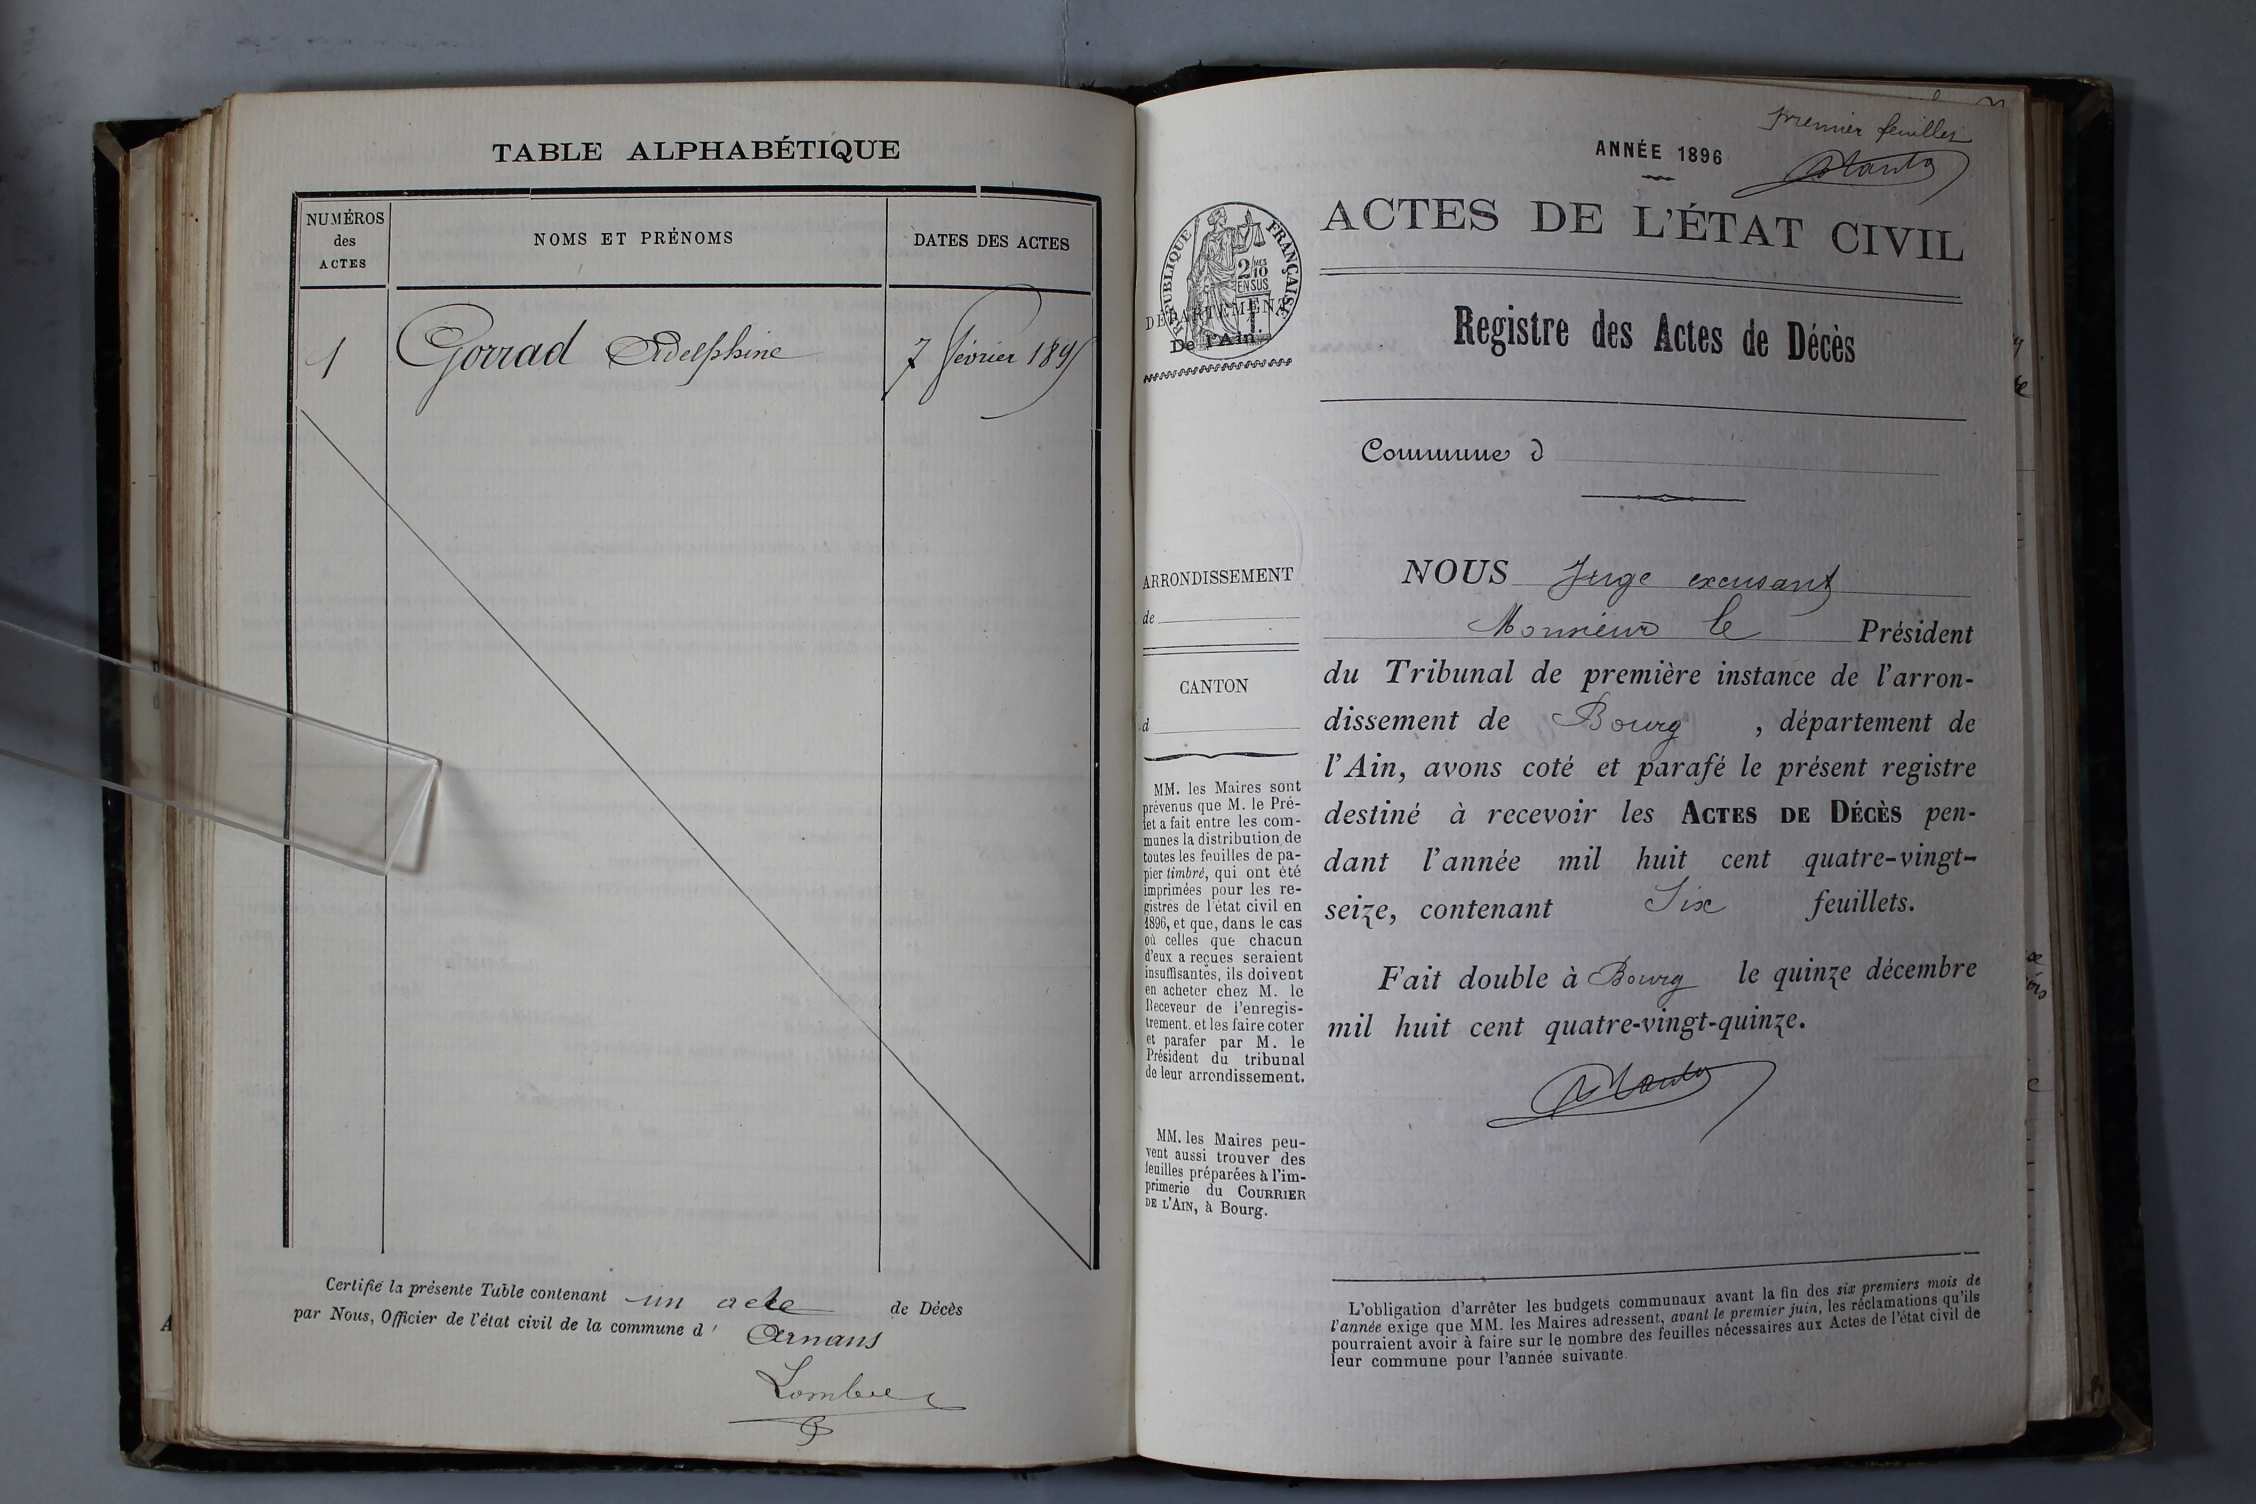 TABLE ALPHABÉTIQUE
NUMÉROS
des
ACTES
NOMS ET PRÉNOMS
DATES DES ACTES
1 Gorrad Adelphine 7 février 1895
Certifié la présente Table contenant un acte de Décès
par Nous, Officier de l'état civil de la commune d' Arnans
premier feuillet
ANNÉE 1896
ACTES DE L'ÉTAT CIVIL
RÉPUBLIQUE FRANÇAISE
2/10
MES
EN SUS
DÉPARTEMENT
De l'Ain.
Registre des Actes de Décès
Commune d
ARRONDISSEMENT
de
CANTON
d
MM. les Maires sont
prévenus que M. le Pré-
fet a fait entre les com-
munes la distribution de
toutes les feuilles de pa-
pier timbré, qui ont été
imprimées pour les re-
gistres de l'état civil en
1896, et que, dans le cas
où celles que chacun
d'eux a reçues seraient
insuffisantes, ils doivent
en acheter chez M. le
Receveur de l'enregis-
trement, et les faire coter
et parafer par M. le
Président du tribunal
de leur arrondissement.
MM. les Maires peu-
vent aussi trouver des
feuilles préparées à l'im-
primerie du COURRIER
DE L'AIN, à Bourg.
NOUS Juge excusant
Monsieur le Président
du Tribunal de première instance de l'arron-
dissement de Bourg, département de
l'Ain, avons coté et parafé le présent registre
destiné à recevoir les ACTES DE DÉCÈS pen-
dant l'année mil huit cent quatre-vingt-
seize, contenant Six feuillets.
Fait double à Bourg le quinze décembre
mil huit cent quatre-vingt-quinze.
L'obligation d'arrêter les budgets communaux avant la fin des six premiers mois de
l'année exige que MM. les Maires adressent, avant le premier juin, les réclamations qu'ils
pourraient avoir à faire sur le nombre des feuilles nécessaires aux Actes de l'état civil de
leur commune pour l'année suivante.